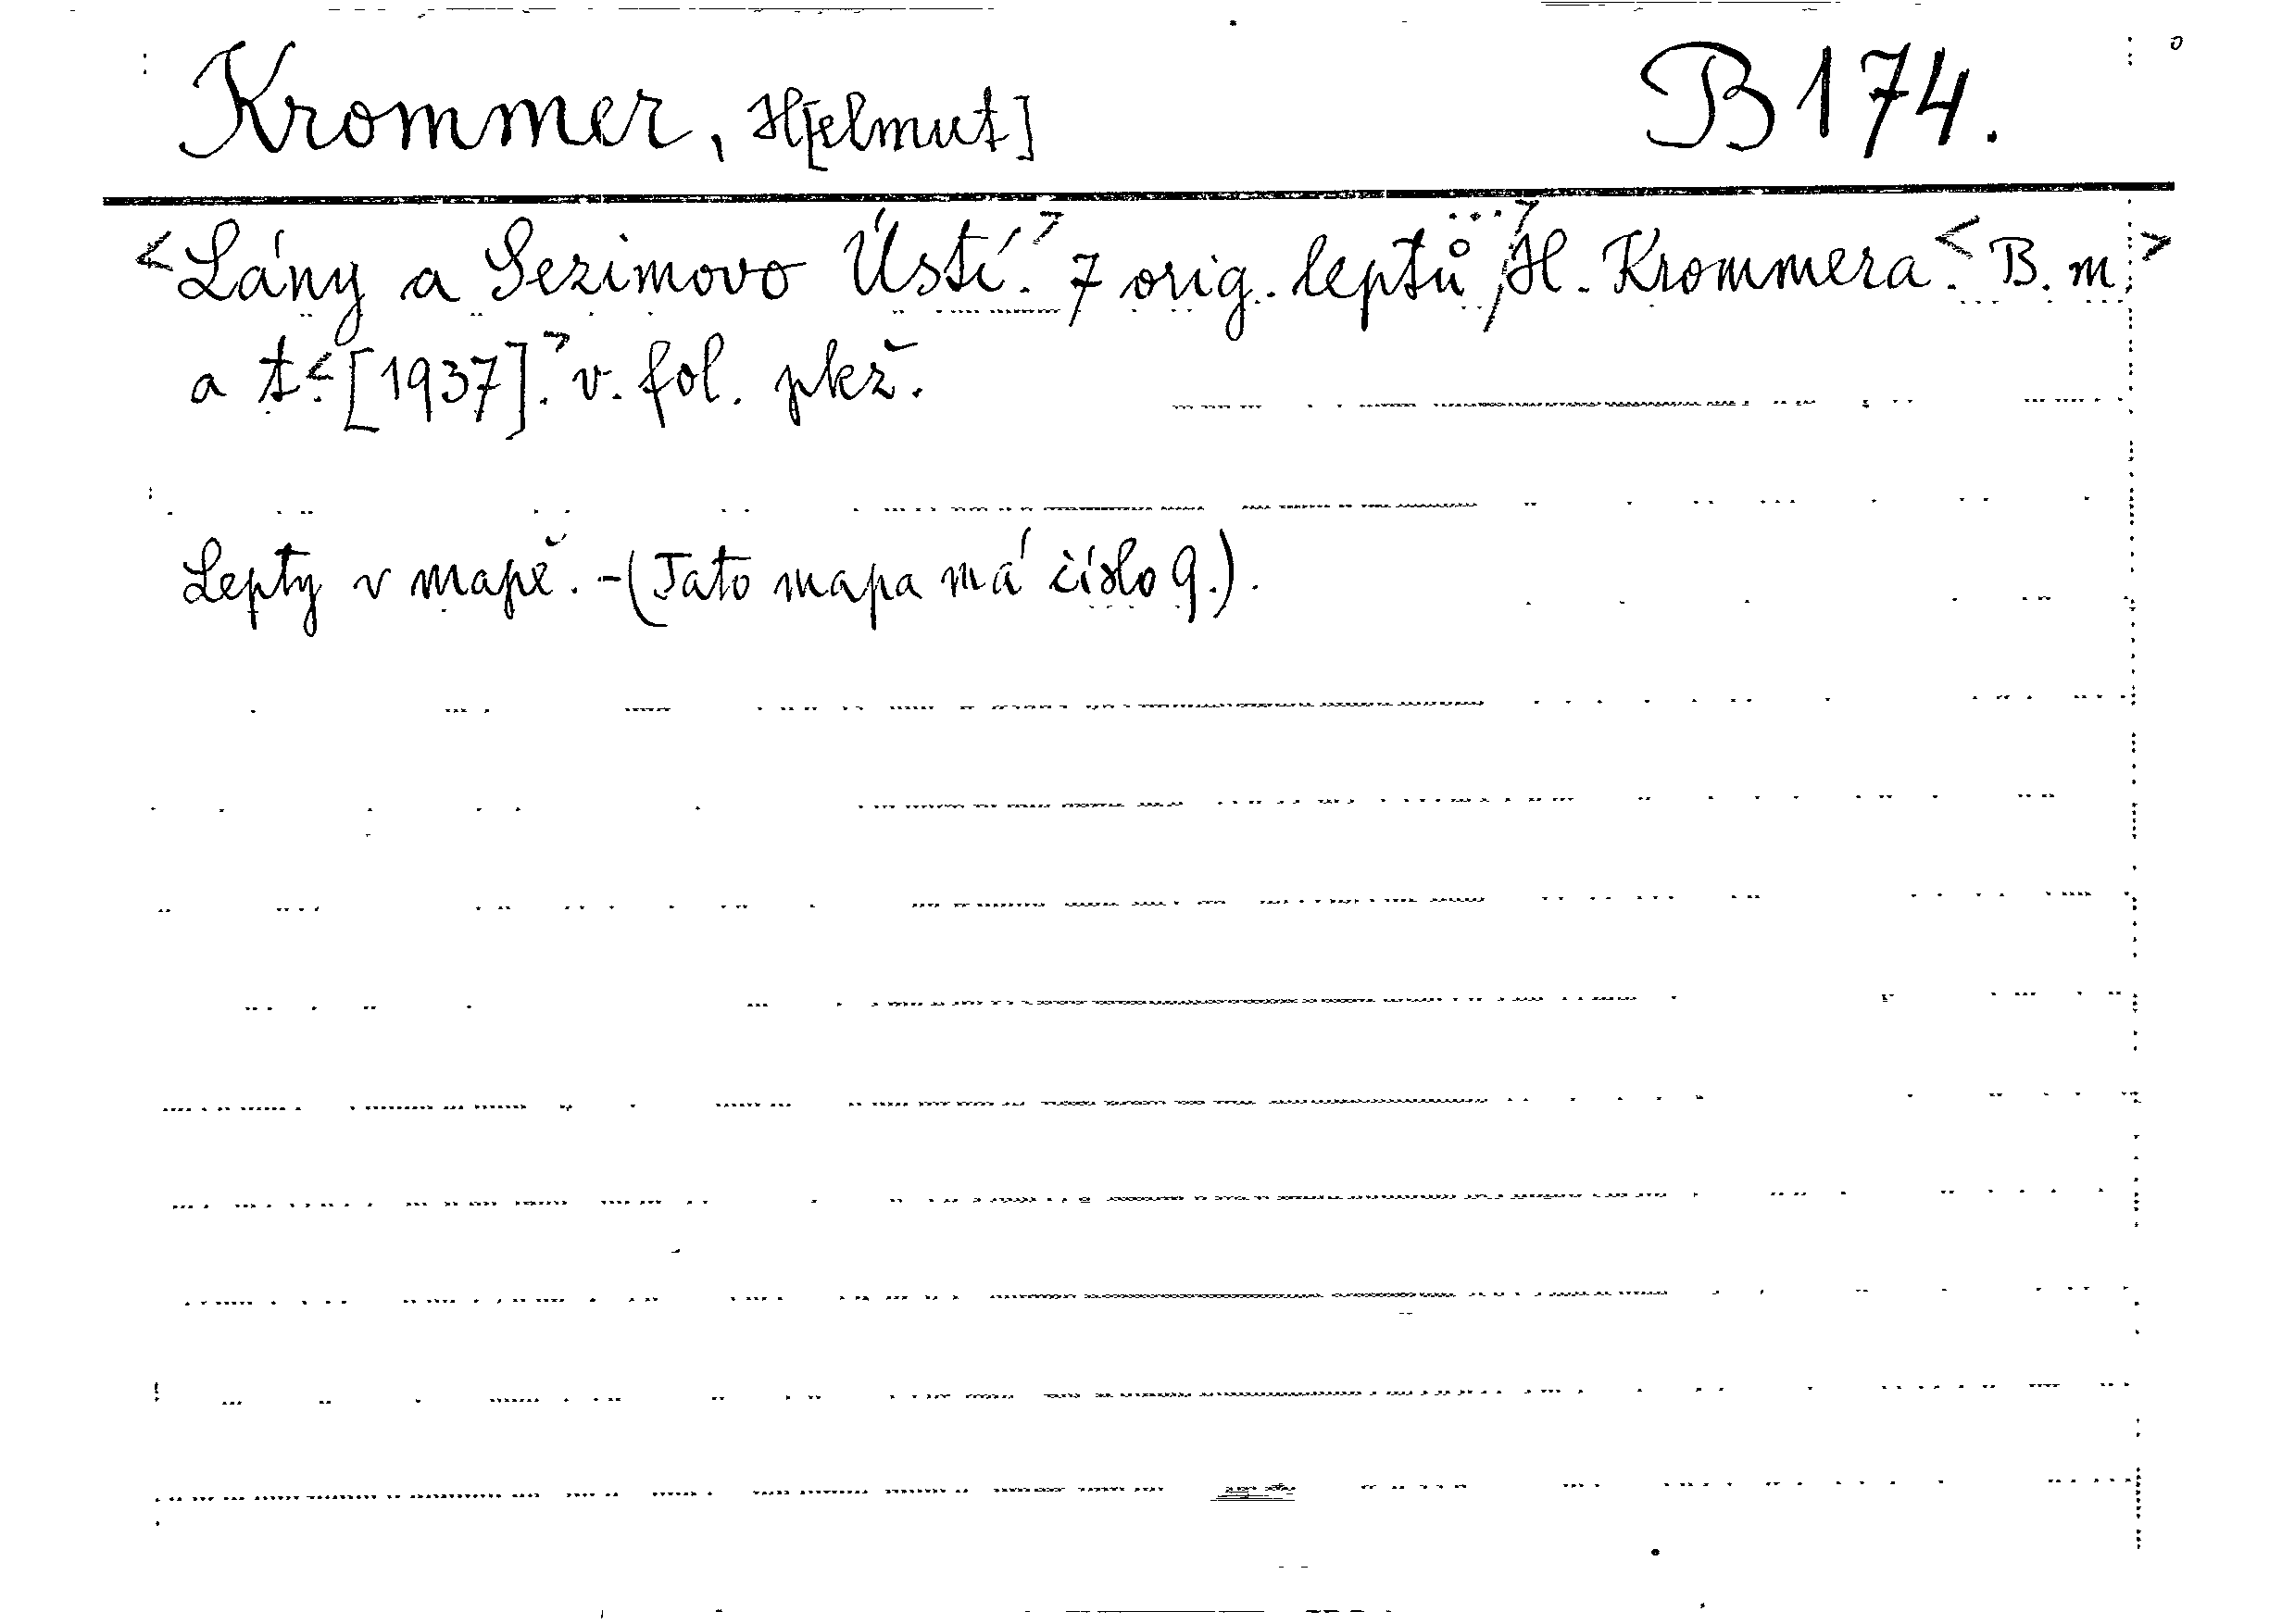 Krommer, H[elmut] B 174.
<Lány a Sezimovo Ústí.> 7 orig. leptů ...>/H. Krommera.< B. m.>
a t.< [1937].> v. fol. pkž.
Lepty v mapě. - (Tato mapa má číslo 9.).